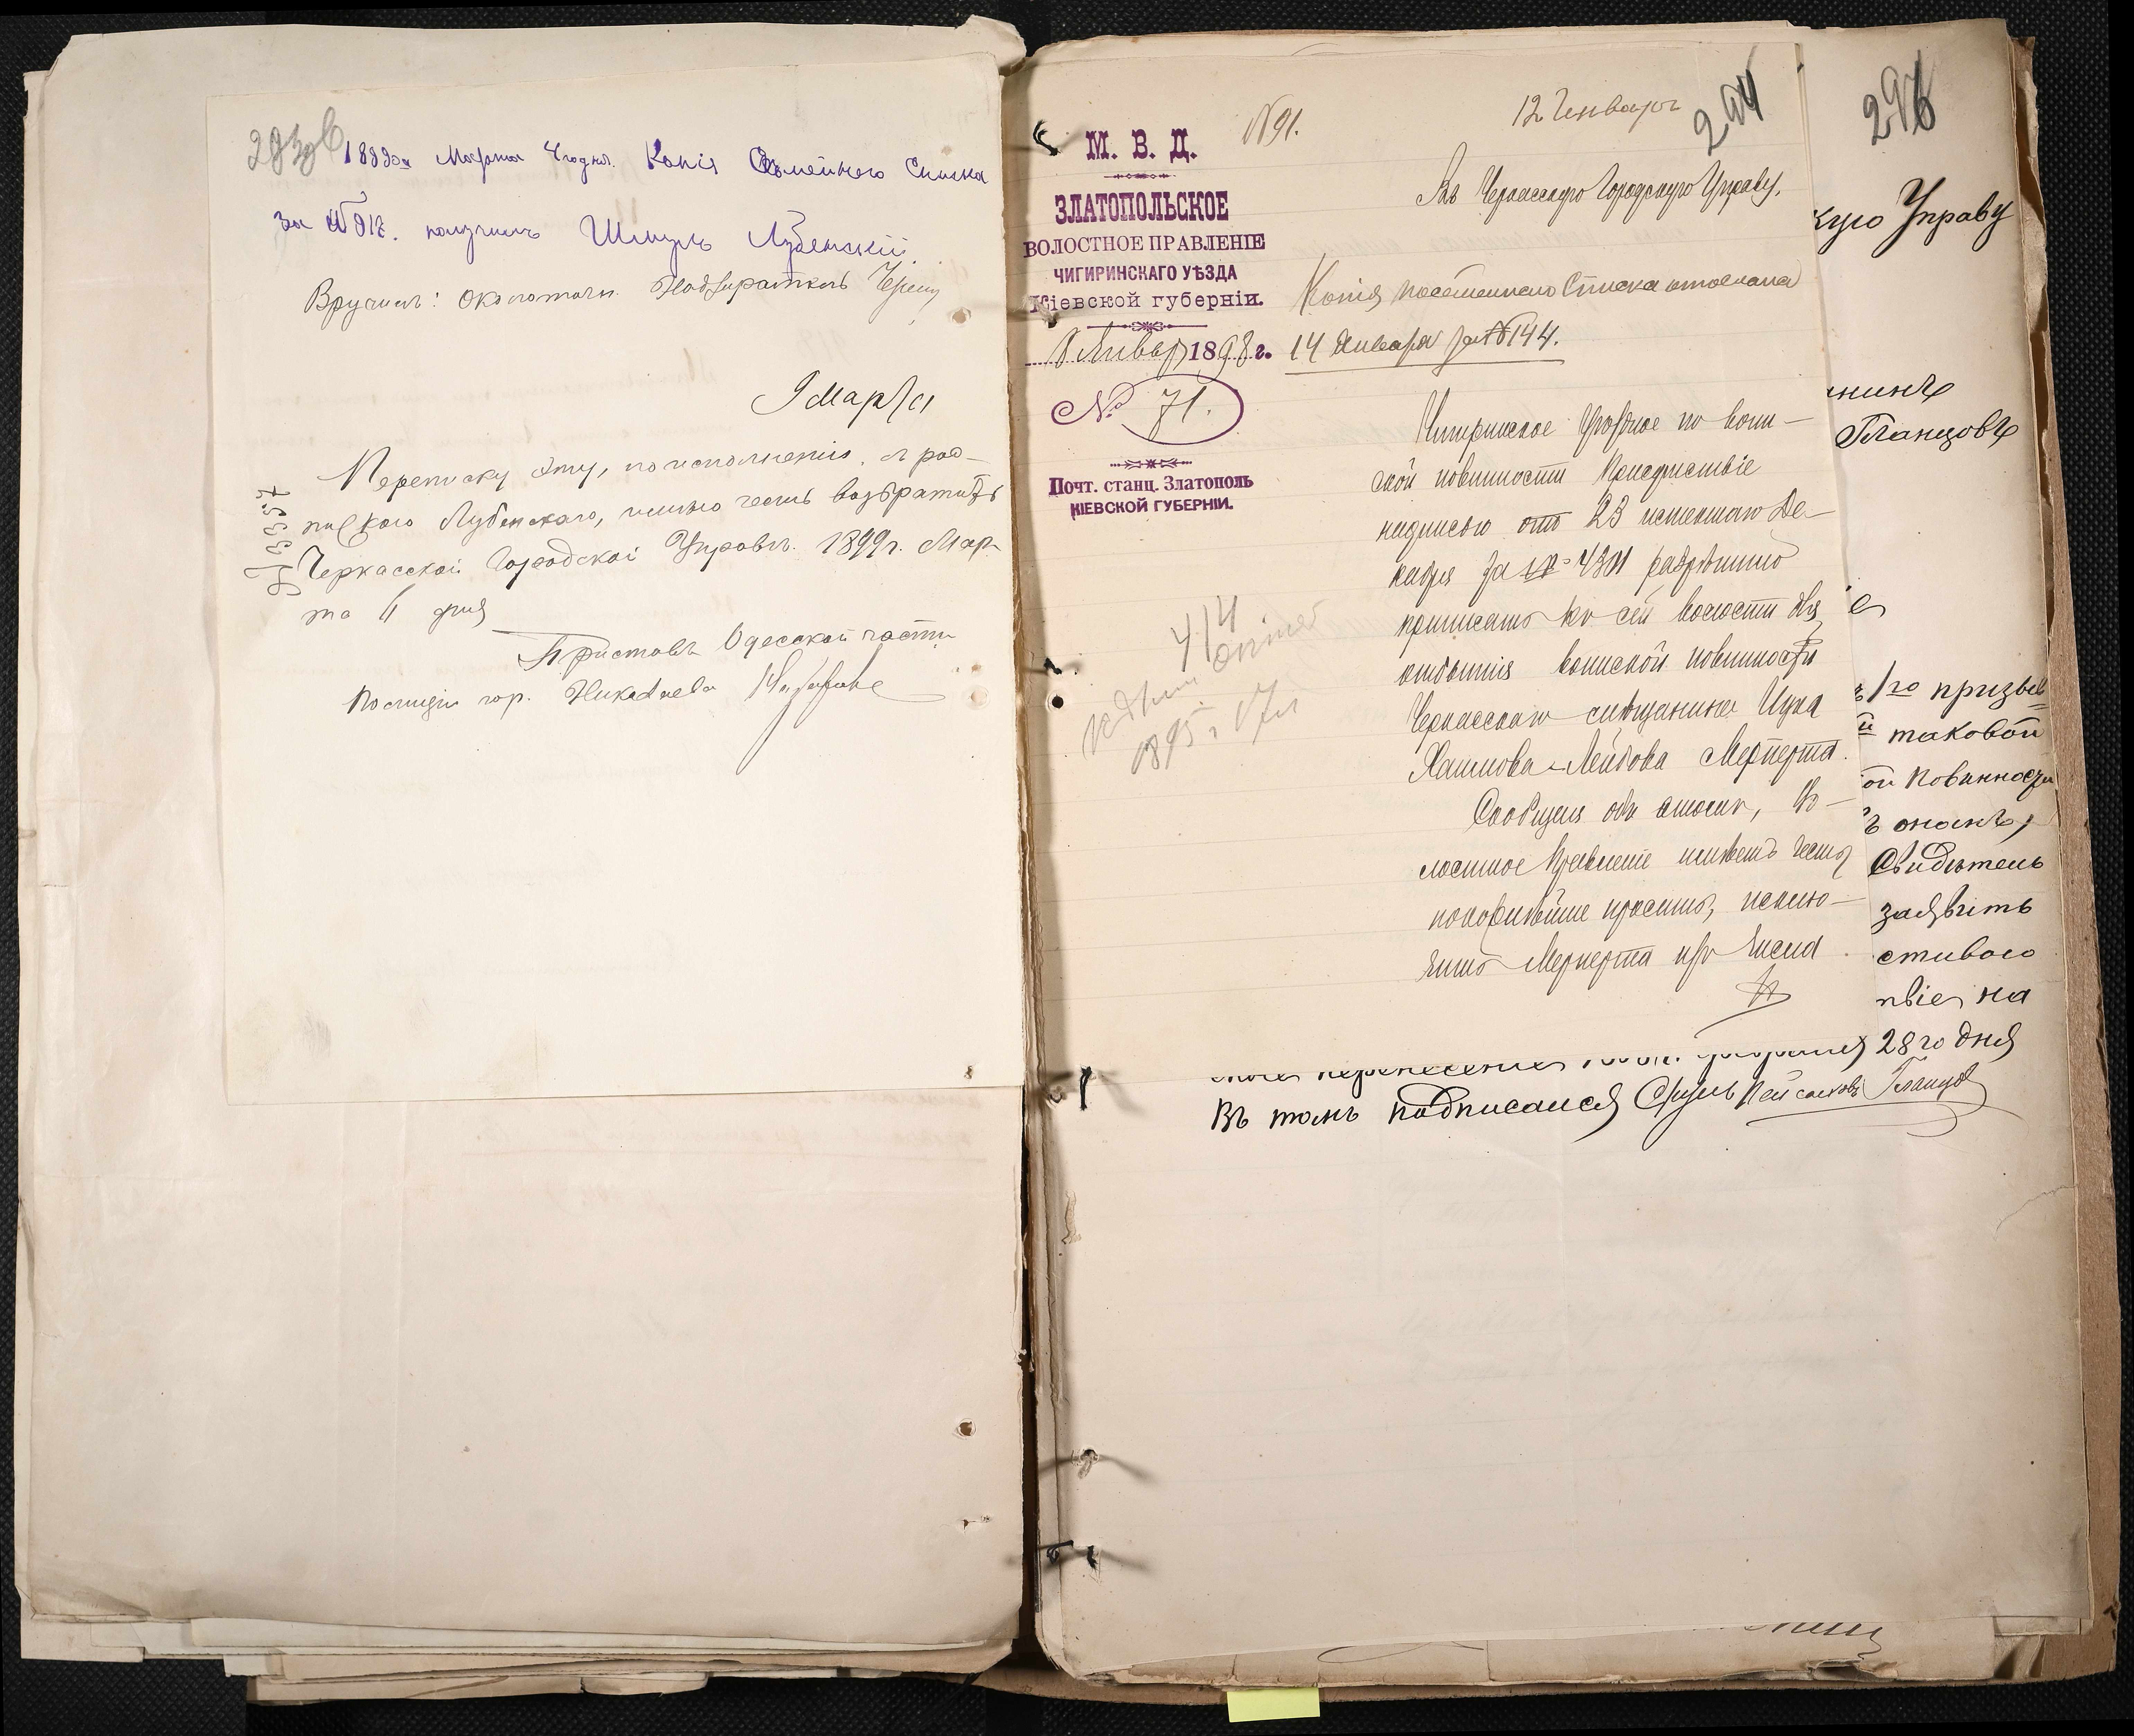 293 об
1899 го Марта 4 дня. Копія Семейнаго Списка
за № 912. получилъ Шмуль Лубенскій
Вручилъ: Околоточн. Надзиратель
9 Марта
Переписку эту, по исполненіи, и рос-
пиською Лубенскаго, имѣю честь возвратить
Черкасской Городской Управѣ. 1899 г. Мар-
та 4 дня
Приставъ Одесской части
Полиціи гор. Николаева
№ 91.
12 Генваря
294
М. В. Д.
ЗЛАТОПОЛЬСКОЕ
ВОЛОСТНОЕ ПРАВЛЕНІЕ
ЧИГИРИНСКАГО УѢЗДА
Кіевской губерніи.
8 Январ 1898 г.
№ 71.
Почт. станц. Златополь
КІЕВСКОЙ ГУБЕРНІИ.
Въ Черкасскую Городскую Управу.
Копія посемейнаго Списка отослана
14 Января за № 144.
Чигиринское Уѣздное по воин-
ской повинности Присутствіе
надписью отъ 23 истекшаго Де-
кабря за № 4301 разрѣшило
приписать къ сей волости для
отбытія воинской повинности
Черкасскаго мѣщанина Ицка
Хаимова-Лейбова Мерперта.
Сообщая объ этомъ, Во-
лостное Правленіе имѣетъ честь
покорнѣйше просить, исклю-
чить Мерперта изъ числа
414
1895 г.
296
кую Управу
нинъ
Гланцовъ
е
ъ 1го призыв
й таковой
ой повинности
ъ ономъ,
Свидѣтель
заявить
стивого
твіе на
28 го дня
Въ томъ подписался Сруль Пейсаховъ Гланцов